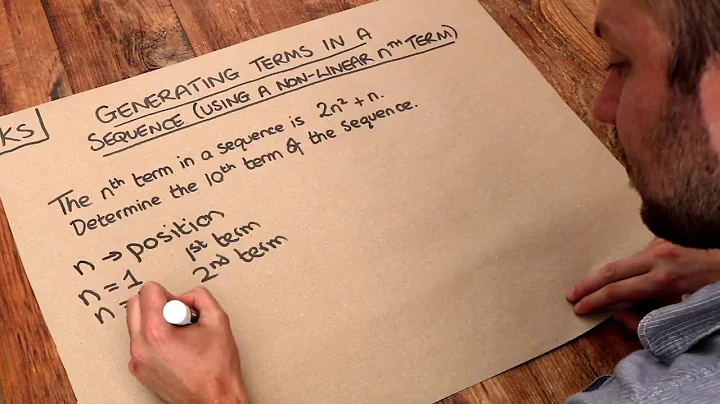 KS
GENERATING TERMS IN A
SEQUENCE (USING A NON-LINEAR nᵀᴴ TERM)
The nᵗʰ term in a sequence is 2n² + n.
Determine the 10ᵗʰ term of the sequence.
n → position
n = 1 1st term
n = 2nd term